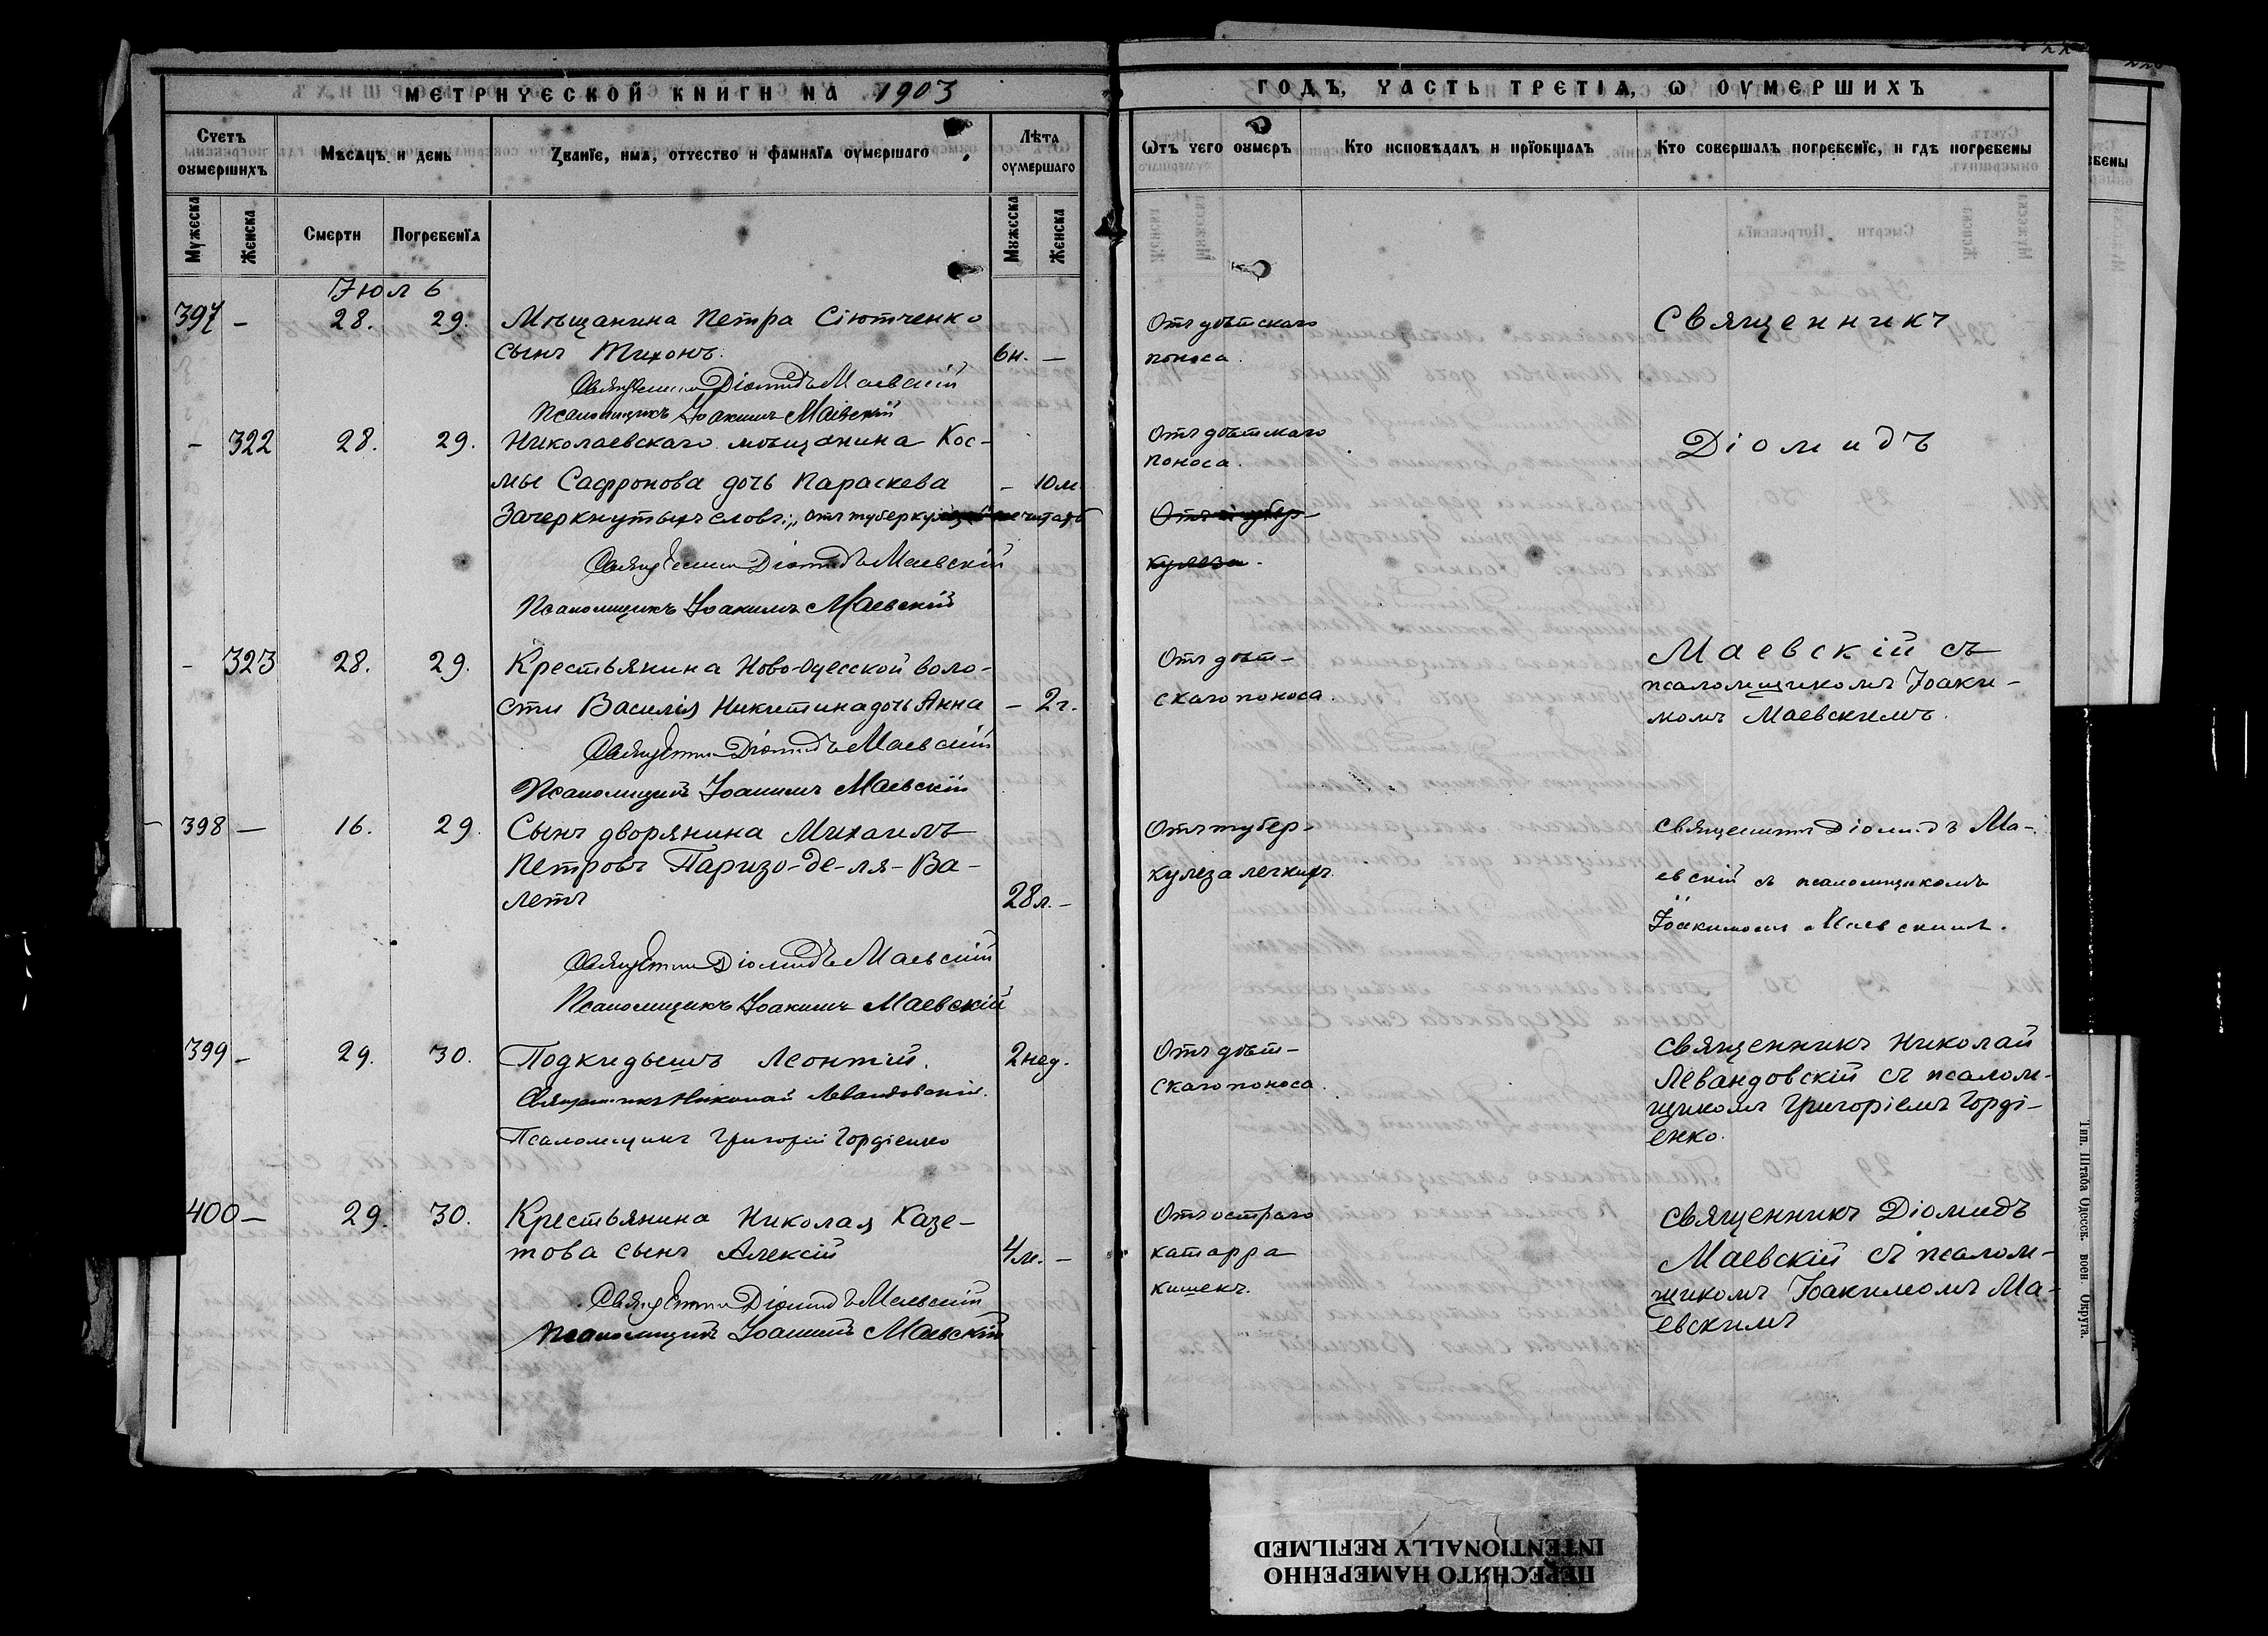 МЕТРИЧЕСКОЙ КНИГИ НА 1903
ГОДЪ, ЧАСТЬ ТРЕТІѦ, Ѡ ОУМЕРШИХЪ
Счетъ оумершихъ
Мѣсѧцъ и день
Званїе, имѧ, отчество и фамилїѧ оумершаго
Лѣта оумершаго
Ѿтъ чего оумеръ
Кто исповѣдалъ и прїобщалъ
Кто совершалъ погребенїе, и гдѣ погребены
Мужеска
Женска
Смерти
Погребенїѧ
Мужеска
Женска
Іюль
397 — 28. 29. Мѣщанина Петра Сіютченко
сынъ Тихонъ. 6н. —
Священникъ Діомидъ Маевскій
Псаломщикъ Іоакимъ Маевскій
Отъ дѣтскаго
поноса.
Священникъ
– 322 28. 29. Николаевскаго мѣщанина Кос-
мы Сафронова дочь Параскева – 10м.
Зачеркнутыхъ словъ: „отъ туберкулеза" не читать
Священникъ Діомидъ Маевскій
Псаломщикъ Іоакимъ Маевскій
Отъ дѣтскаго
поноса.
Отъ тубер-
кулеза.
Діомидъ
– 323 28. 29. Крестьянина Ново-Одесской воло-
сти Василія Никитина дочь Анна – 2г.
Священникъ Діомидъ Маевскій
Псаломщикъ Іоакимъ Маевскій
Отъ дѣт-
скаго поноса.
Маевскій съ
псаломщикомъ Іоаки-
момъ Маевскимъ.
398 — 16. 29. Сынъ дворянина Михаилъ
Петровъ Паризо-де-ля-Ва-
летъ 28л. –
Священникъ Діомидъ Маевскій
Псаломщикъ Іоакимъ Маевскій
Отъ тубер-
кулеза легкихъ.
Священникъ Діомидъ Ма-
евскій съ псаломщикомъ
Іоакимомъ Маевскимъ.
399 – 29. 30. Подкидышъ Леонтій. 2 нед.
Священникъ Николай Левандовскій.
Псаломщикъ Григорій Гордіенко
Отъ дѣт-
скаго поноса.
Священникъ Николай
Левандовскій съ псалом-
щикомъ Григоріемъ Горді-
енко.
400 — 29. 30. Крестьянина Николая Казе-
това сынъ Алексій 4м. –
Священникъ Діомидъ Маевскій
Псаломщикъ Іоакимъ Маевскій
Отъ остраго
катарра
кишекъ.
Священникъ Діомидъ
Маевскій съ псалом-
щикомъ Іоакимомъ Ма-
евскимъ
Тип. Штаба Одесск. воен. Округа.
ПЕРЕСНЯТО НАМЕРЕННО
INTENTIONALLY REFILMED